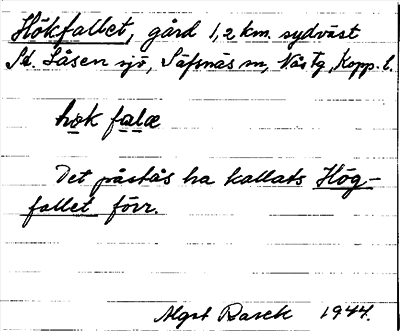 Hökfallet, gård 1,2 km. sydväst
St. Låsen sjö, Säfsnäs sn, Nås tg, Kopp. l.
hök falæ
Det påstås ha kallats Hög-
fallet förr.
Algot Rasck 1944.